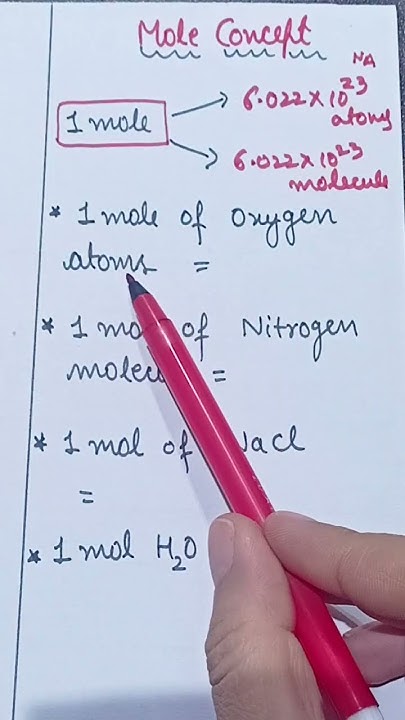 Mole Concept
NA
6.022×10²³
atoms
1 mole
6.022×10²³
molecule
* 1 mole of Oxygen
atoms =
* 1 mo of Nitrogen
molecu =
* 1 mol of NaCl
=
* 1 mol H₂O